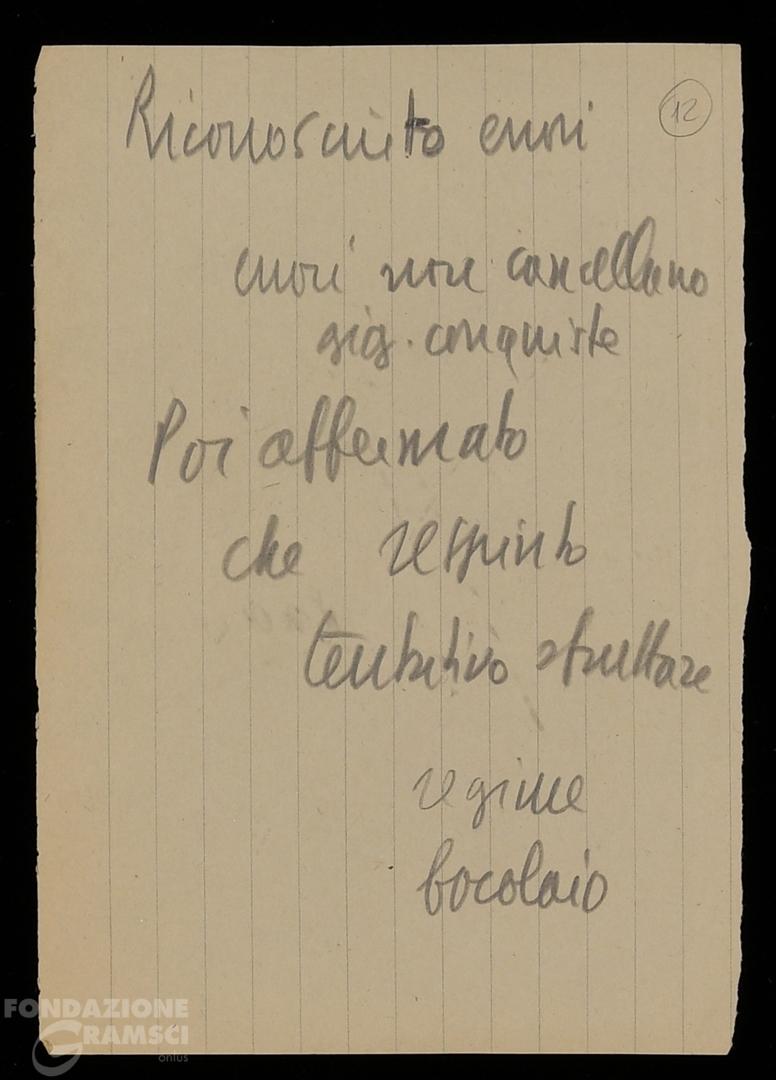 12
Riconosciuto errori
errori non cancellano
gig. conquiste
Poi affermato
che respinto
tentativo sfruttare
regime
focolaio
FONDAZIONE
GRAMSCI
onlus